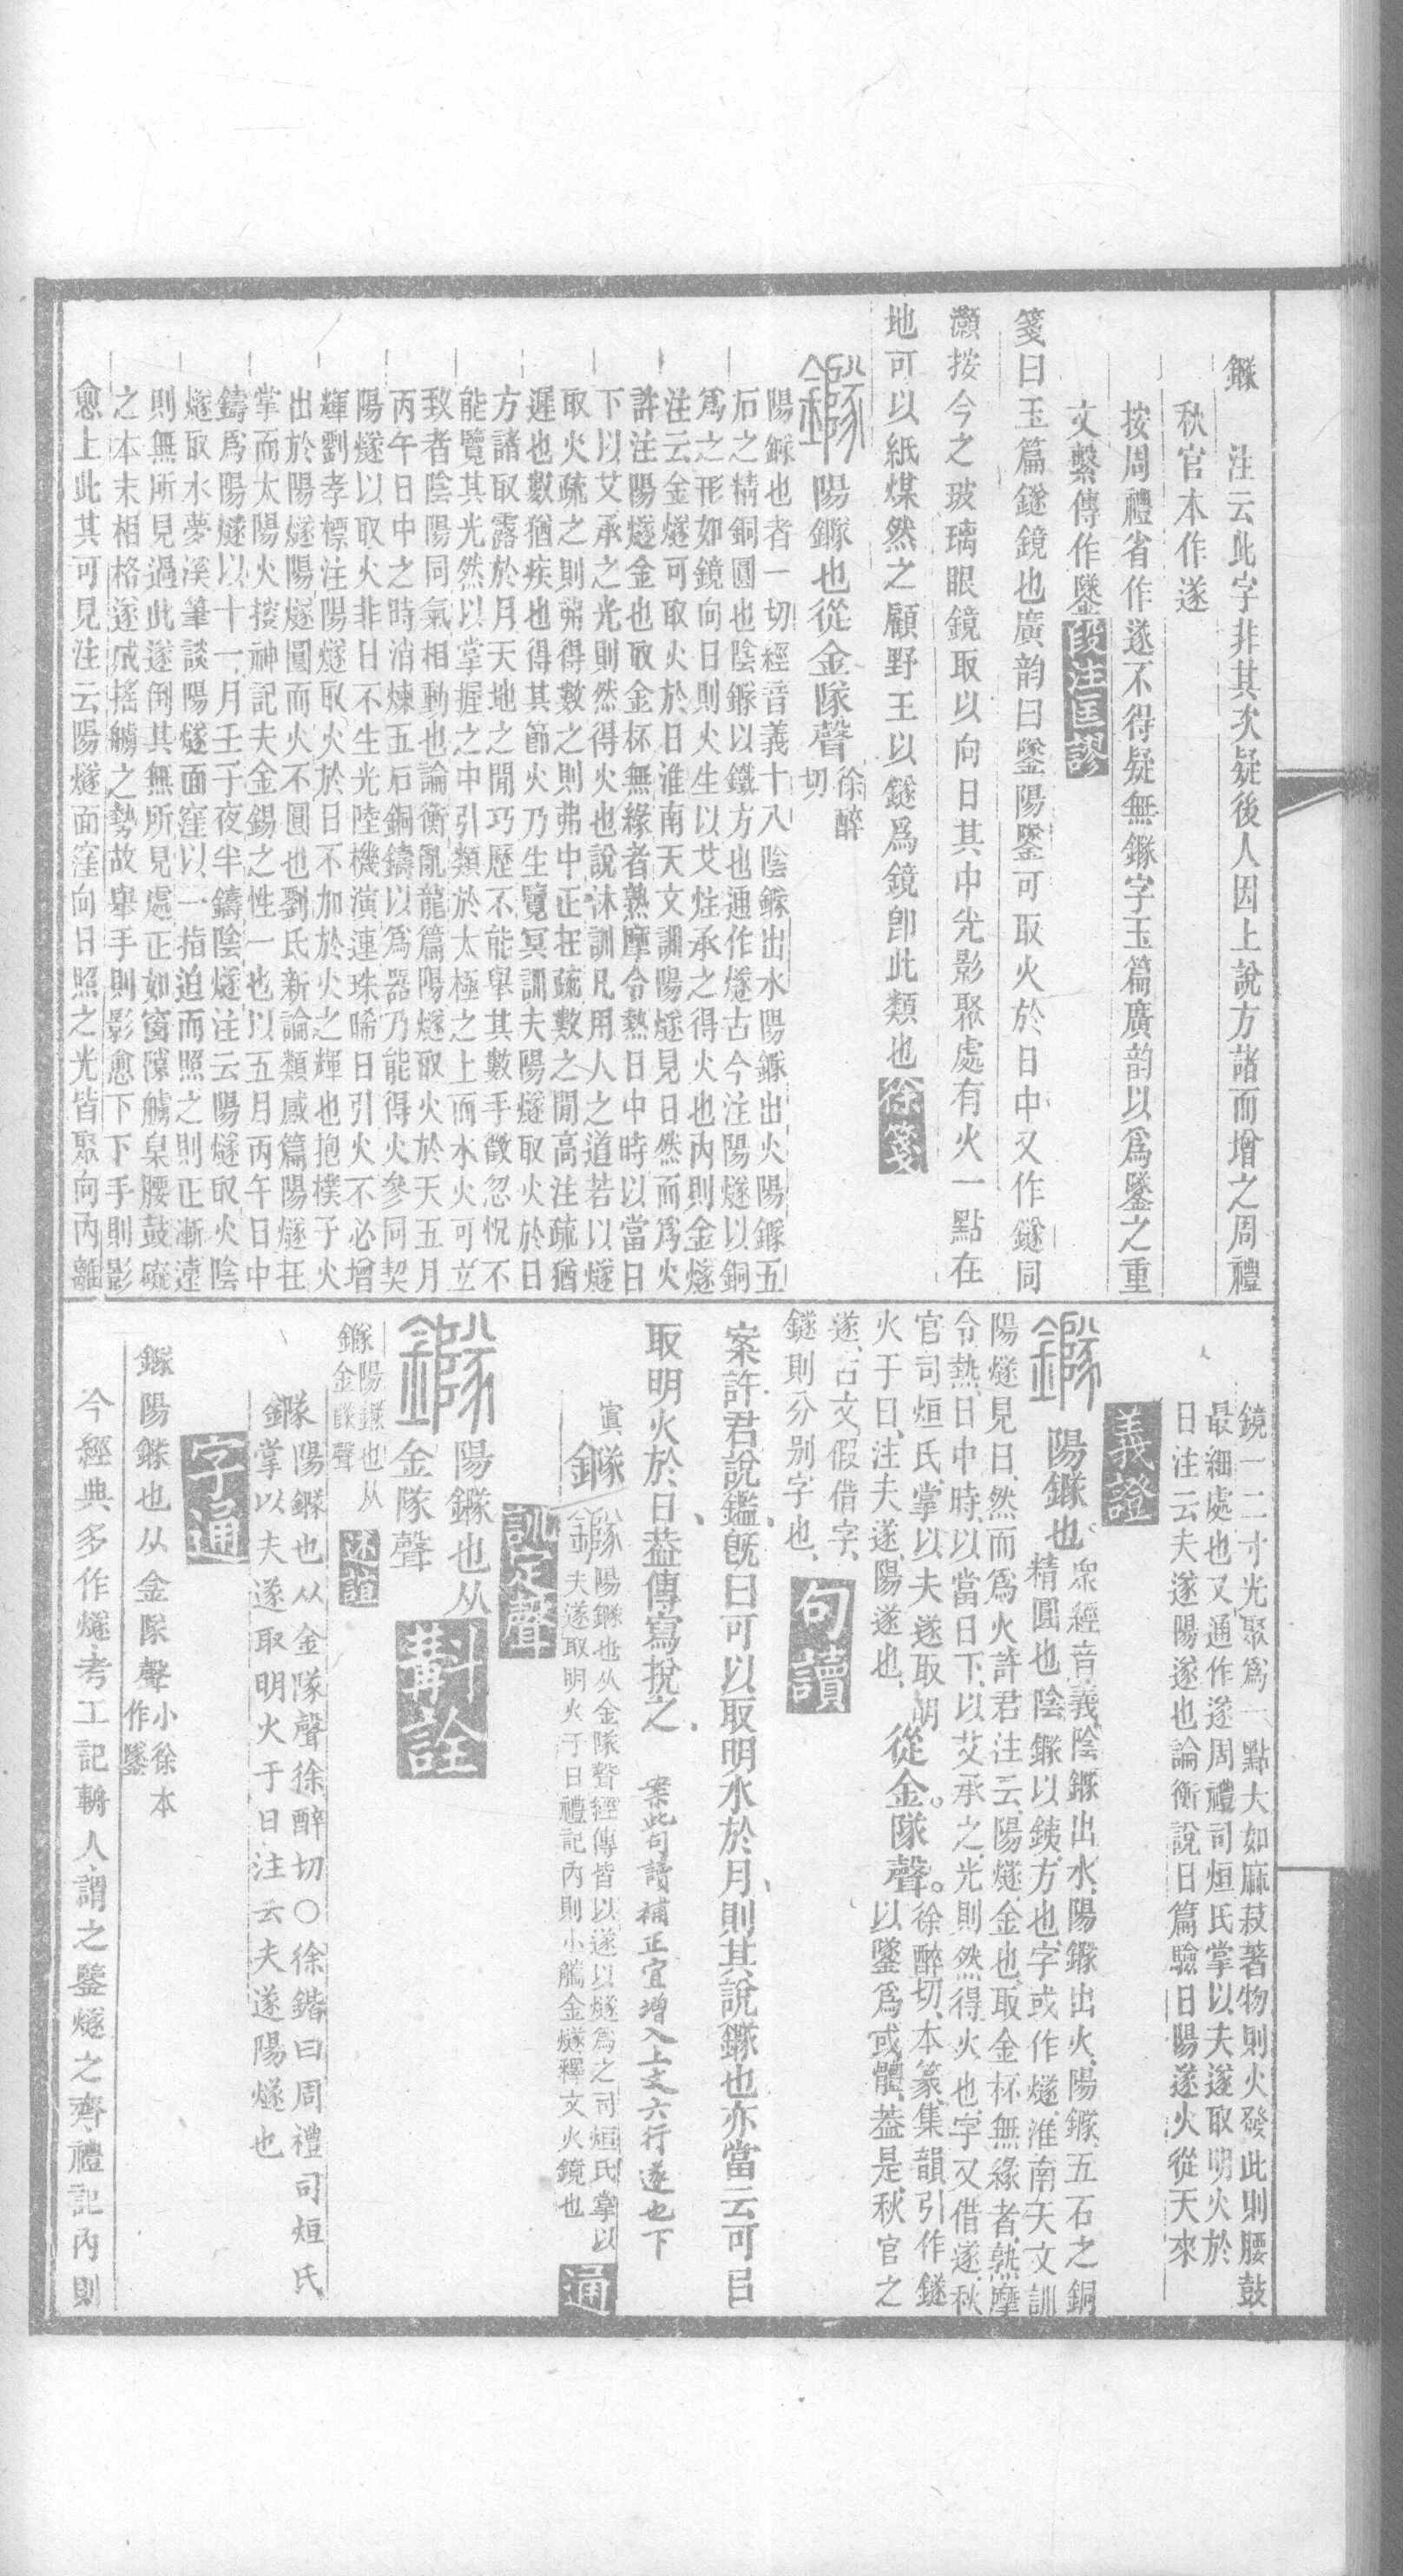 鐆　注云此字非其次疑後人因上說方諸而增之周禮
秋官本作遂
按周禮省作遂不得疑無鐆字玉篇廣韵以爲鐆之重
文繫傳作鐆段注匡謬
箋曰玉篇鐩鏡也廣韵曰鐆陽鐆可取火於日中又作鐩同
灝按今之玻璃眼鏡取以向日其中光影聚處有火一點在
地可以紙煤然之顧野王以鐩爲鏡卽此類也徐箋
鐆陽鐆也從金隊聲徐醉切
陽鐆也者一切經音義十八陰鐆出水陽鐆出火陽鐆五
石之精銅圓也陰鐆以鐵方也通作燧古今注陽燧以銅
爲之形如鏡向日則火生以艾炷承之得火也內則金燧
注云金燧可取火於日淮南天文訓陽燧見日然而爲火
許注陽燧金也取金杯無緣者熟摩令熱日中時以當日
下以艾承之光則然得火也說林訓凡用人之道若以燧
取火疏之則弗得數之則弗中正在疏數之閒高注疏猶
遲也數猶疾也得其節火乃生覽冥訓夫陽燧取火於日
方諸取露於月天地之閒巧歷不能舉其數手徵忽怳不
能覽其光然以掌握之中引類於太極之上而水火可立
致者陰陽同氣相動也論衡亂龍篇陽燧取火於天五月
丙午日中之時消煉五石銅鑄以爲器乃能得火參同契
陽燧以取火非日不生光陸機演連珠晞日引火不必增
輝劉孝標注陽燧取火於日不加於火之輝也抱樸子火
出於陽燧陽燧圓而火不圓也劉氏新論類感篇陽燧在
掌而太陽火搜神記夫金錫之性一也以五月丙午日中
鑄爲陽燧以十一月壬子夜半鑄陰燧注云陽燧取火陰
燧取水夢溪筆談陽燧面窪以一指迫而照之則正漸遠
則無所見過此遂倒其無所見處正如窗隙艣臬腰鼓礙
之本末相格遂成搖艣之勢故舉手則影愈下下手則影
愈上此其可見注云陽燧面窪向日照之光皆聚向內離
鏡一二寸光聚爲一點大如麻菽著物則火發此則腰鼓
最細處也又通作遂周禮司烜氏掌以夫遂取明火於
日注云夫遂陽遂也論衡說日篇驗日陽遂火從天來
義證
鐆陽鐆也衆經音義陰鐆出水陽鐆出火陽鐆五石之銅
精圓也陰鐆以銕方也字或作燧淮南天文訓
陽燧見日然而爲火許君注云陽燧金也取金杯無緣者熟摩
令熱日中時以當日下以艾承之光則然得火也字又借遂秋
官司烜氏掌以夫遂取明從金隊聲。徐醉切本篆集韻引作鐩
火于日注夫遂陽遂也以鐆爲或體葢是秋官之
遂古文假借字
鐩則分别字也句讀
案許君說鑑旣曰可以取明水於月則其說鐆也亦當云可㠯
取明火於日葢傳寫挩之案此句讀補正宜增入上文六行遂也下
鐆陽鐆也从金隊聲經傳皆以遂以燧爲之司烜氏掌以
夫遂取明火于日禮記內則小觿金燧釋文火鏡也通
訓定聲
鐆陽鐆也从
金隊聲斠詮
鐆陽鐆也从
金隊聲述誼
鐆陽鐆也从金隊聲徐醉切○徐鍇曰周禮司烜氏
掌以夫遂取明火于日注云夫遂陽燧也
字通
鐆陽鐆也从金隊聲小徐本作鐆
今經典多作燧考工記輈人謂之鑒燧之齊禮記內則